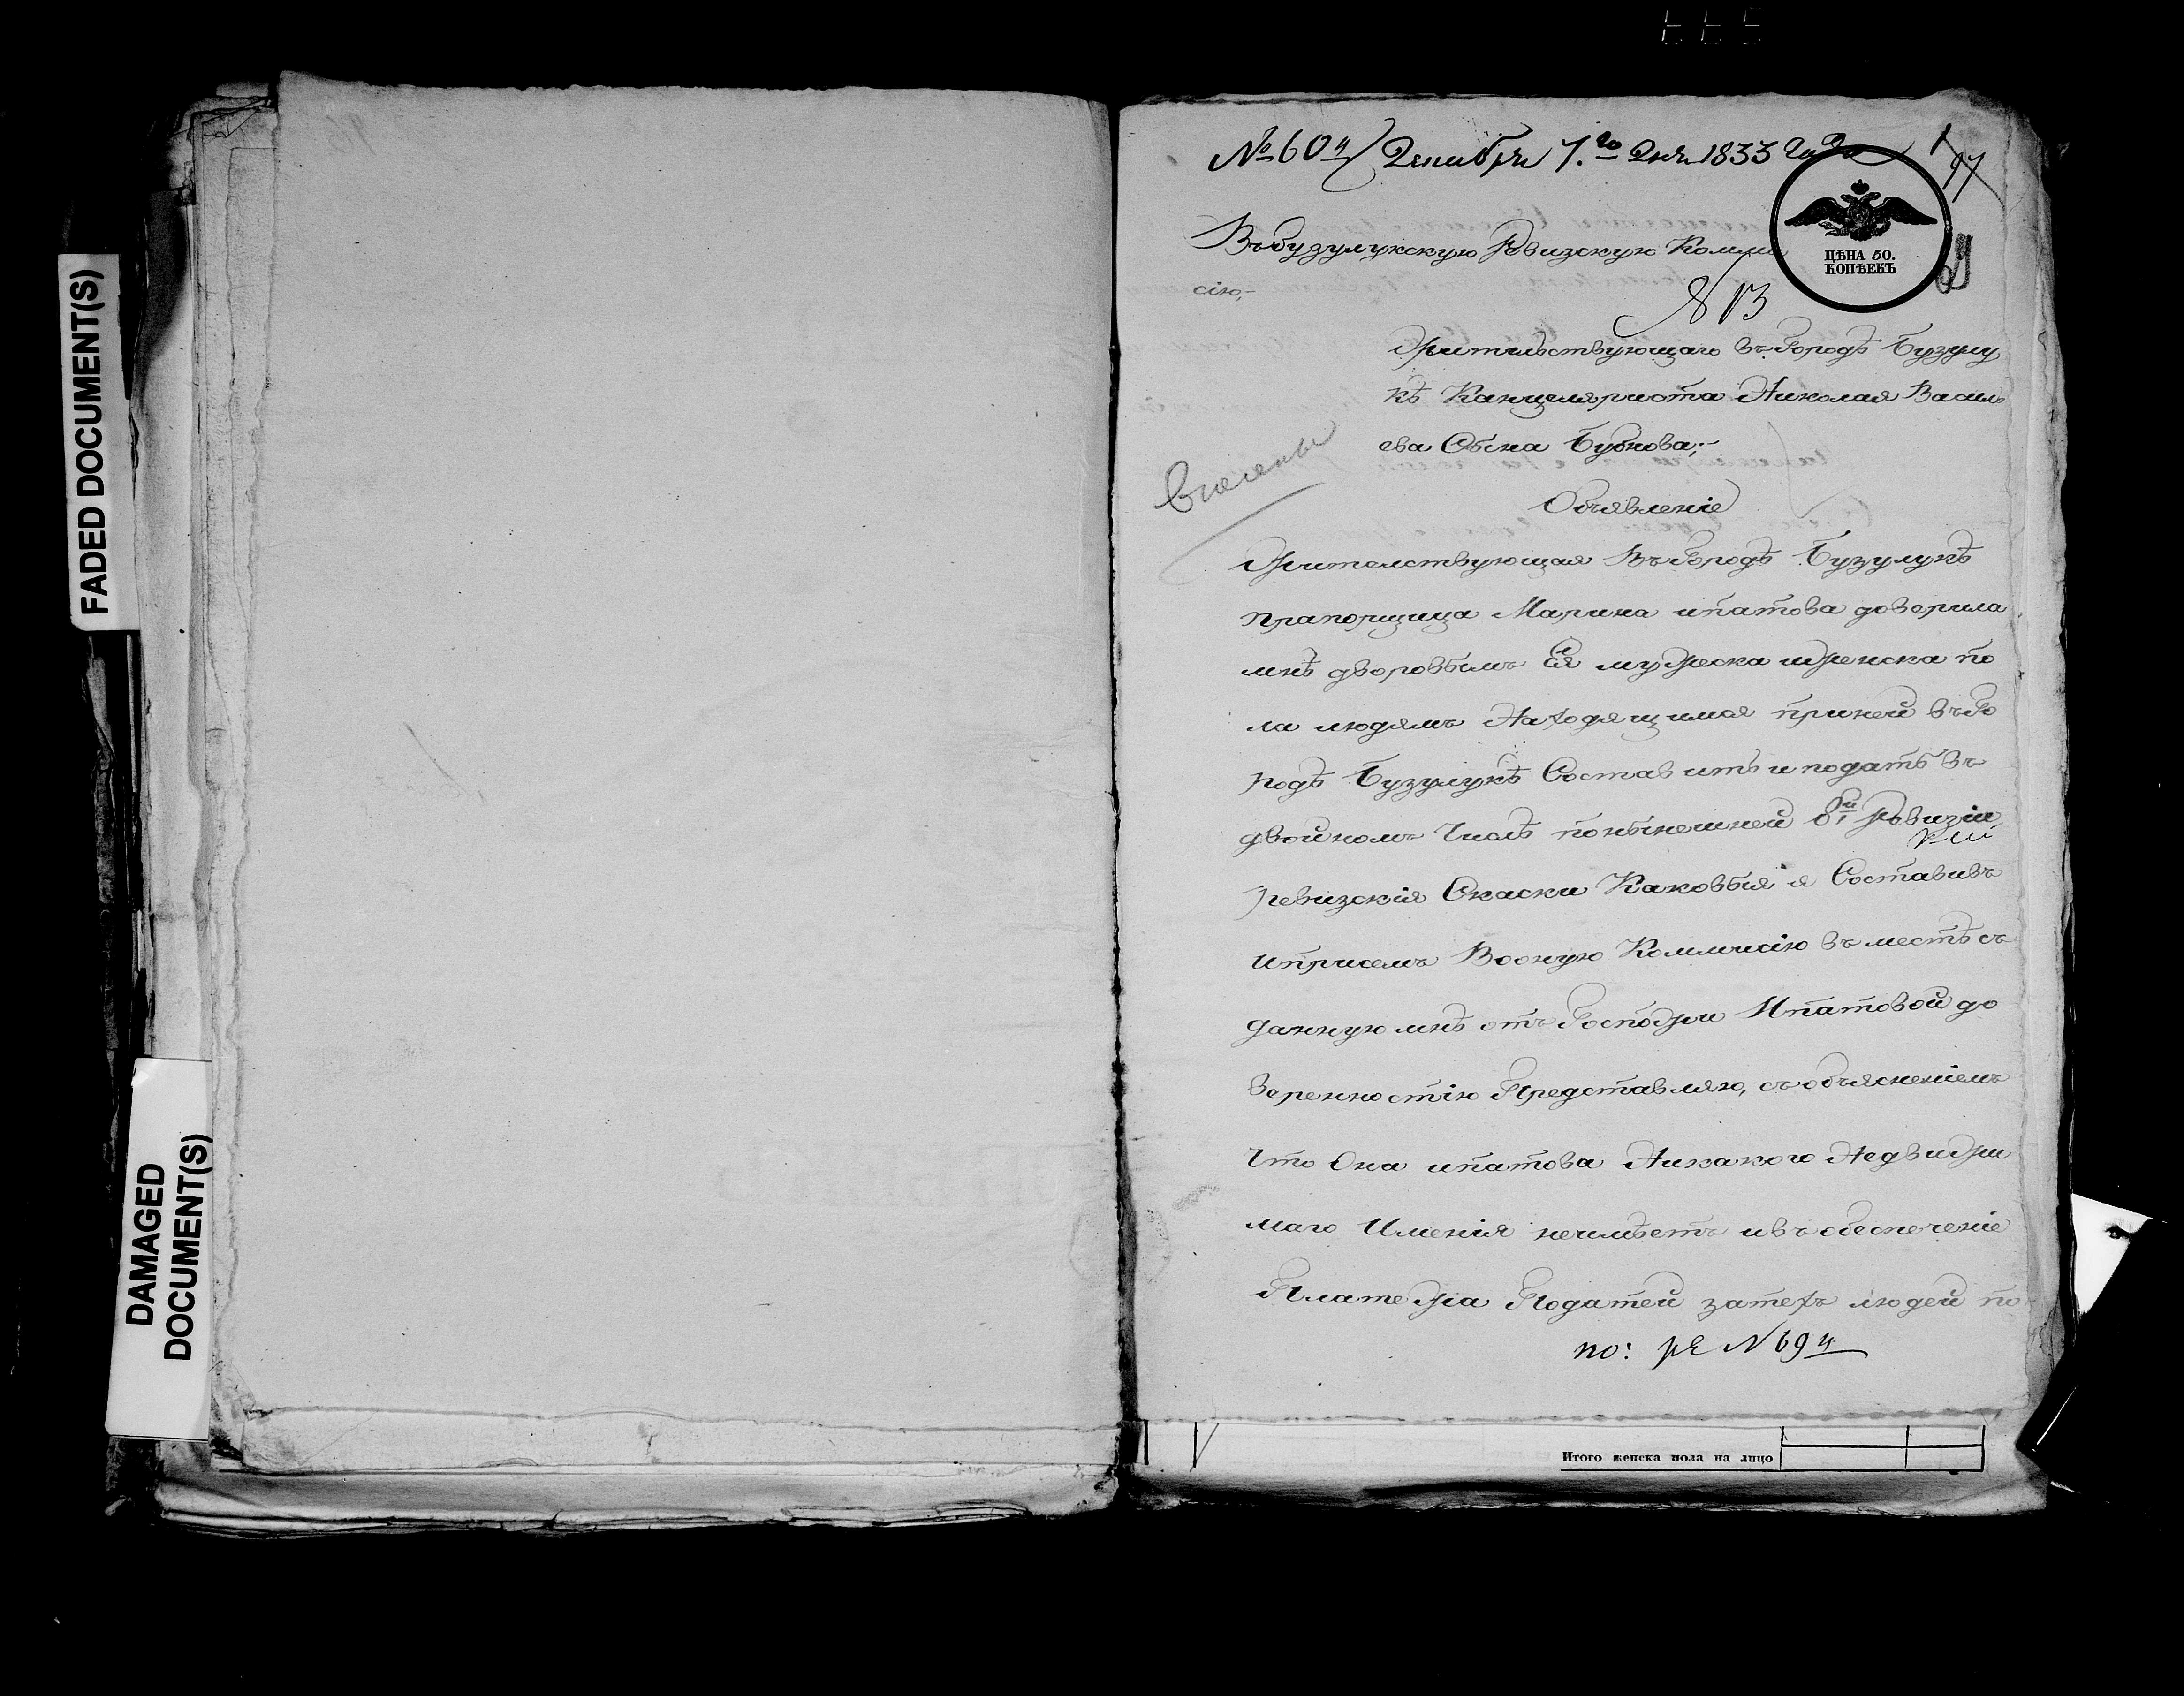 FADED DOCUMENT(S)
DAMAGED
DOCUMENT(S)
№ 604 Декабря 7.го дня 1833 года
97
Въ бузулукскую Ревизскую Комми
сію,-
ЦѢНА 50.
КОПѢЕКЪ
813
Жительствующаго въ Городѣ Бузулу
кѣ Канцеляриста Николая Василь
ева Сына Бубнова;-
Объявленіе
Жителствующая Въ Городѣ Бузулукѣ
прапорщица Марина ипатова доверила
мнѣ дворовымъ Ея мужеска иженска по
ла людямъ Находящимся приней въ Го
родѣ Бузулукѣ Составить и подать въ
двойномъ Числѣ понынешней 8й Ревизіи
ревизскія Скаски Каковыя я Составивъ
иприсемъ Вооную Коммисію въ местѣ съ
данную мнѣ отъ Госпожи Ипатовой до
веренностію Представляю, съ объясненіемъ
Что Она ипатова Никакого Недвижи
маго Именія неимѣетъ ивъ обеспеченіе
Платежа Податей затехъ людей по
по: ре № 694
Итого женска пола на лицо